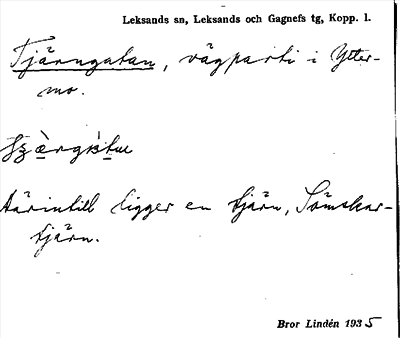 Leksands sn, Leksands och Gagnefs tg, Kopp. l.
Tjärngatan, vägparti i Ytter-
mo.
därintill ligger en tjärn,
tjärn.
Bror Lindén 1935